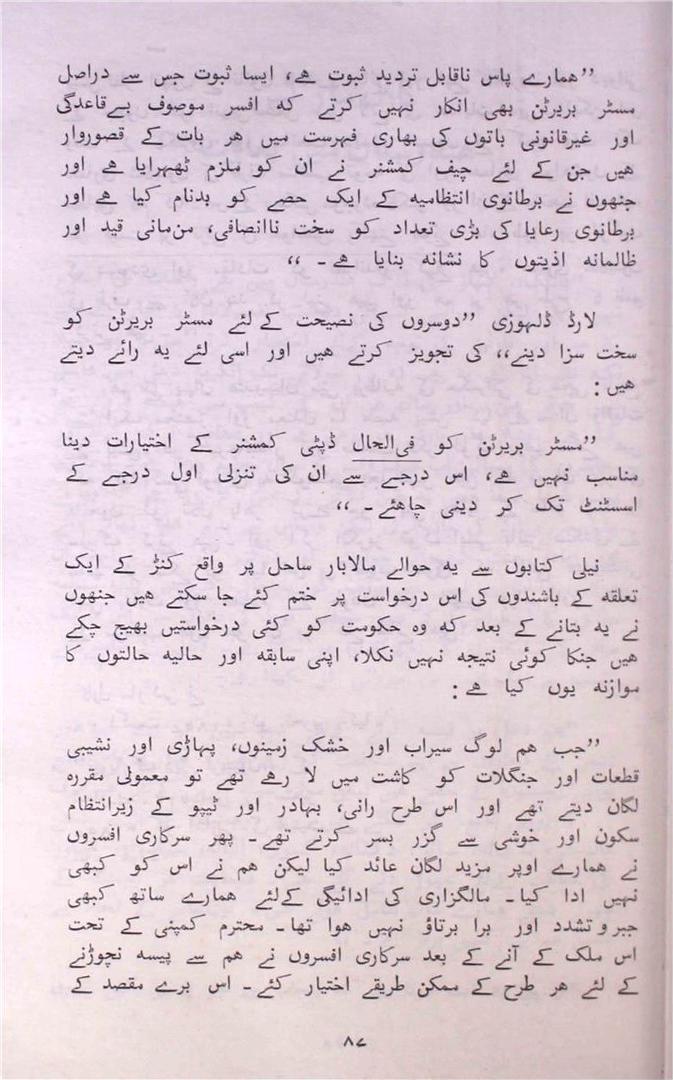 ”ہمارے پاس ناقابل تردید ثبوت ہے، ایسا ثبوت جس سے دراصل
مسٹر بریرٹن بھی انکار نہیں کرتے کہ افسر موصوف بےقاعدگی
اور غیرقانونی باتوں کی بھاری فہرست میں ہر بات کے قصوروار
ہیں جن کے لئے چیف کمشنر نے ان کو ملزم ٹھہرایا ہے اور
جنھوں نے برطانوی انتظامیہ کے ایک حصے کو بدنام کیا ہے اور
برطانوی رعایا کی بڑی تعداد کو سخت ناانصافی، من‌مانی قید اور
ظالمانہ اذیتوں کا نشانہ بنایا ہے۔ ،،
لارڈ ڈلہوزی ”دوسروں کی نصیحت کے‌لئے مسٹر بریرٹن کو
سخت سزا دینے،، کی تجویز کرتے ہیں اور اسی لئے یہ رائے دیتے
ہیں:
”مسٹر بریرٹن کو فی‌الحال ڈپٹی کمشنر کے اختیارات دینا
مناسب نہیں ہے، اس درجے سے ان کی تنزلی اول درجے کے
اسسٹنٹ تک کر دینی چاہئے۔ ،،
نیلی کتابوں سے یہ حوالے مالابار ساحل پر واقع کنڑ کے ایک
تعلقہ کے باشندوں کی اس درخواست پر ختم کئے جا سکتے ہیں جنھوں
نے یہ بتانے کے بعد کہ وہ حکومت کو کئی درخواستیں بھیج چکے
ہیں جنکا کوئی نتیجہ نہیں نکلا، اپنی سابقہ اور حالیہ حالتوں کا
موازنہ یوں کیا ہے:
”جب ہم لوگ سیراب اور خشک زمینوں، پہاڑی اور نشیبی
قطعات اور جنگلات کو کاشت میں لا رہے تھے تو معمولی مقررہ
لگان دیتے تھے اور اس طرح رانی، بہادر اور ٹیپو کے زیرانتظام
سکون اور خوشی سے گزر بسر کرتے تھے۔ پھر سرکاری افسروں
نے ہمارے اوپر مزید لگان عائد کیا لیکن ہم نے اس کو کبھی
نہیں ادا کیا۔ مالگزاری کی ادائیگی کے‌لئے ہمارے ساتھ کبھی
جبر و تشدد اور برا برتاؤ نہیں ہوا تھا۔ محترم کمپنی کے تحت
اس ملک کے آنے کے بعد سرکاری افسروں نے ہم سے پیسہ نچوڑنے
کے لئے ہر طرح کے ممکن طریقے اختیار کئے۔ اس برے مقصد کے
۸۷